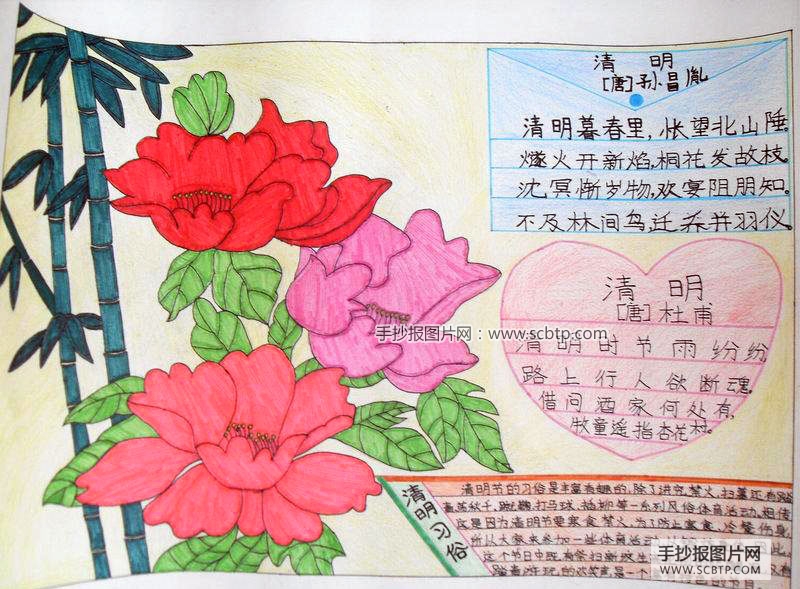 清 明
[唐]孙昌胤
清明暮春里,怅望北山陲。
燧火开新焰,桐花发故枝。
沈冥惭岁物,欢宴阻朋知。
不及林间鸟,迁乔并羽仪。
清 明
[唐]杜甫
清明时节雨纷纷
路上行人欲断魂。
借问酒家何处有,
牧童遥指杏花村。
手抄报图片网:www.scbtp.com
清明习俗
清明节的习俗是丰富有趣的,除了讲究禁火、扫墓还有
荡秋千、蹴鞠、打马球、插柳等一系列风俗体育活动。相传
这是因为清明节要寒食禁火,为了防止寒食冷餐伤身,
所以大家来参加一些体育活动
这个节日中既有祭扫新坟生
踏青游玩的欢笑声,是一个
手抄报图片网
WWW.SCBTP.COM